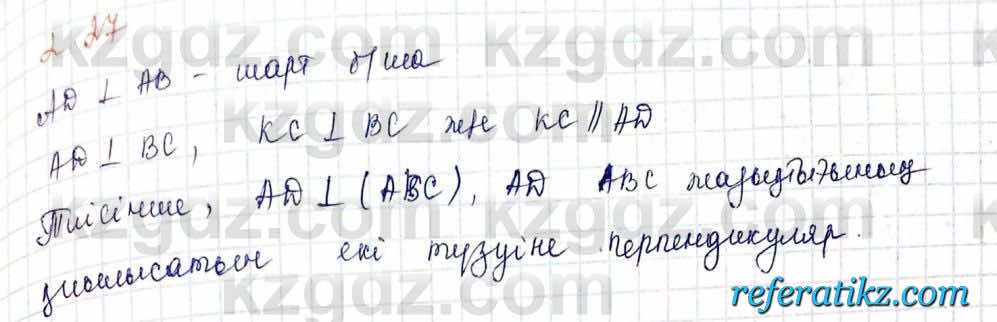 2.27
AD ⊥ AB - шарт б/ша
AD ⊥ BC, KC ⊥ BC және KC || AD
Тиісінше, AD ⊥ (ABC), AD ABC жазықтығының
қиылысатын екі түзуіне перпендикуляр.
referatikz.com